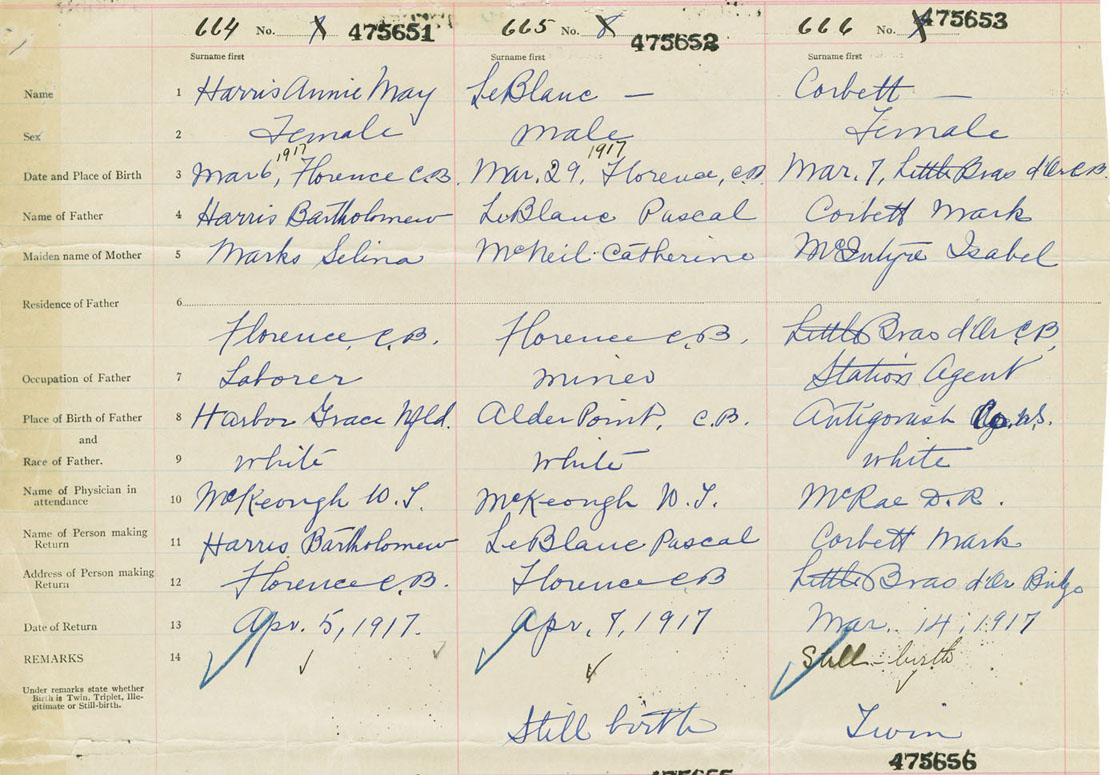 664 No. 475651 665 No. 8 475652 666 No. 475653
Surname first Surname first Surname first
Name 1 Harris Annie May LeBlanc — Corbett —
Sex 2 Female male Female
1917 1917
Date and Place of Birth 3 Mar 6, Florence C.B. Mar. 29, Florence, C.B. Mar. 7, Little Bras d'Or C.B.
Name of Father 4 Harris Bartholomew LeBlanc Pascal Corbett Mark
Maiden name of Mother 5 Marks Selina McNeil Catherine McIntyre Isabel
Residence of Father 6
Florence, C.B. Florence C.B. Little Bras d'Or C.B.
Occupation of Father 7 Laborer miner Station Agent
Place of Birth of Father 8 Harbor Grace Nfld. Alder Point, C.B. Antigonish Co. N.S.
and
Race of Father. 9 white white white
Name of Physician in
attendance 10 McKeough W. J. McKeough W. J. McRae D. R.
Name of Person making
Return 11 Harris Bartholomew LeBlanc Pascal Corbett Mark
Address of Person making
Return 12 Florence C.B. Florence C.B Little Bras d'Or Bridge
Date of Return 13 Apr. 5, 1917. Apr. 7, 1917 Mar. 14, 1917
REMARKS 14 Still-birth
Under remarks state whether
Birth is Twin, Triplet, Ille-
gitimate or Still-birth.
Still birth Twin
475656